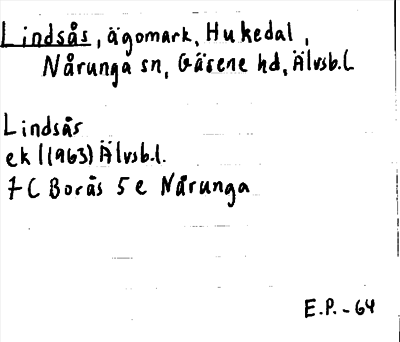 Lindsås, ägomark, Hukedal,
Nårunga sn, Gäsene hd, Älvsb.l.
Lindsås
ek l (1963) Älvsb.l.
7C Borås 5e Nårunga
E.P. - 64